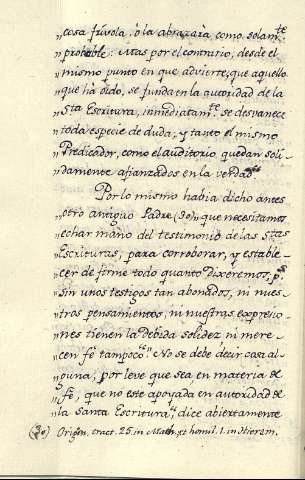 „cosa frívola: ó la abrazarà como solamte
„probable: Mas por el contrario, desde el
„mismo punto en que advierte, que aquello
„que hà oido, se funda en la autoridad de la
„Sta Escritura, inmediatamte se desvanece
„toda especie de duda, y tanto el mismo
„Predicador, como el auditorio quedan soli-
„damente afianzados en la verdad."
Por lo mismo habia dicho antes
otro antiguo Padre (30) que necesitamos
„echar mano del testimonio de las Stas
„Escrituras, para corroborar, y estable-
„cer de firme todo quanto dixeremos, ps
„sin unos testigos tan abonados, ni nues-
„tros pensamientos, ni nuestras expresio-
„nes tienen la debida solidez ni mere-
„cen fè tampoco." No se debe decir cosa al-
„guna, por leve que sea en materia de
„fè, que no estè apoyada en autoridad de
„la Santa Escritura", dice abiertamente
(30) Origen. tract. 25. in Math. et homil. 1. in Hierem.